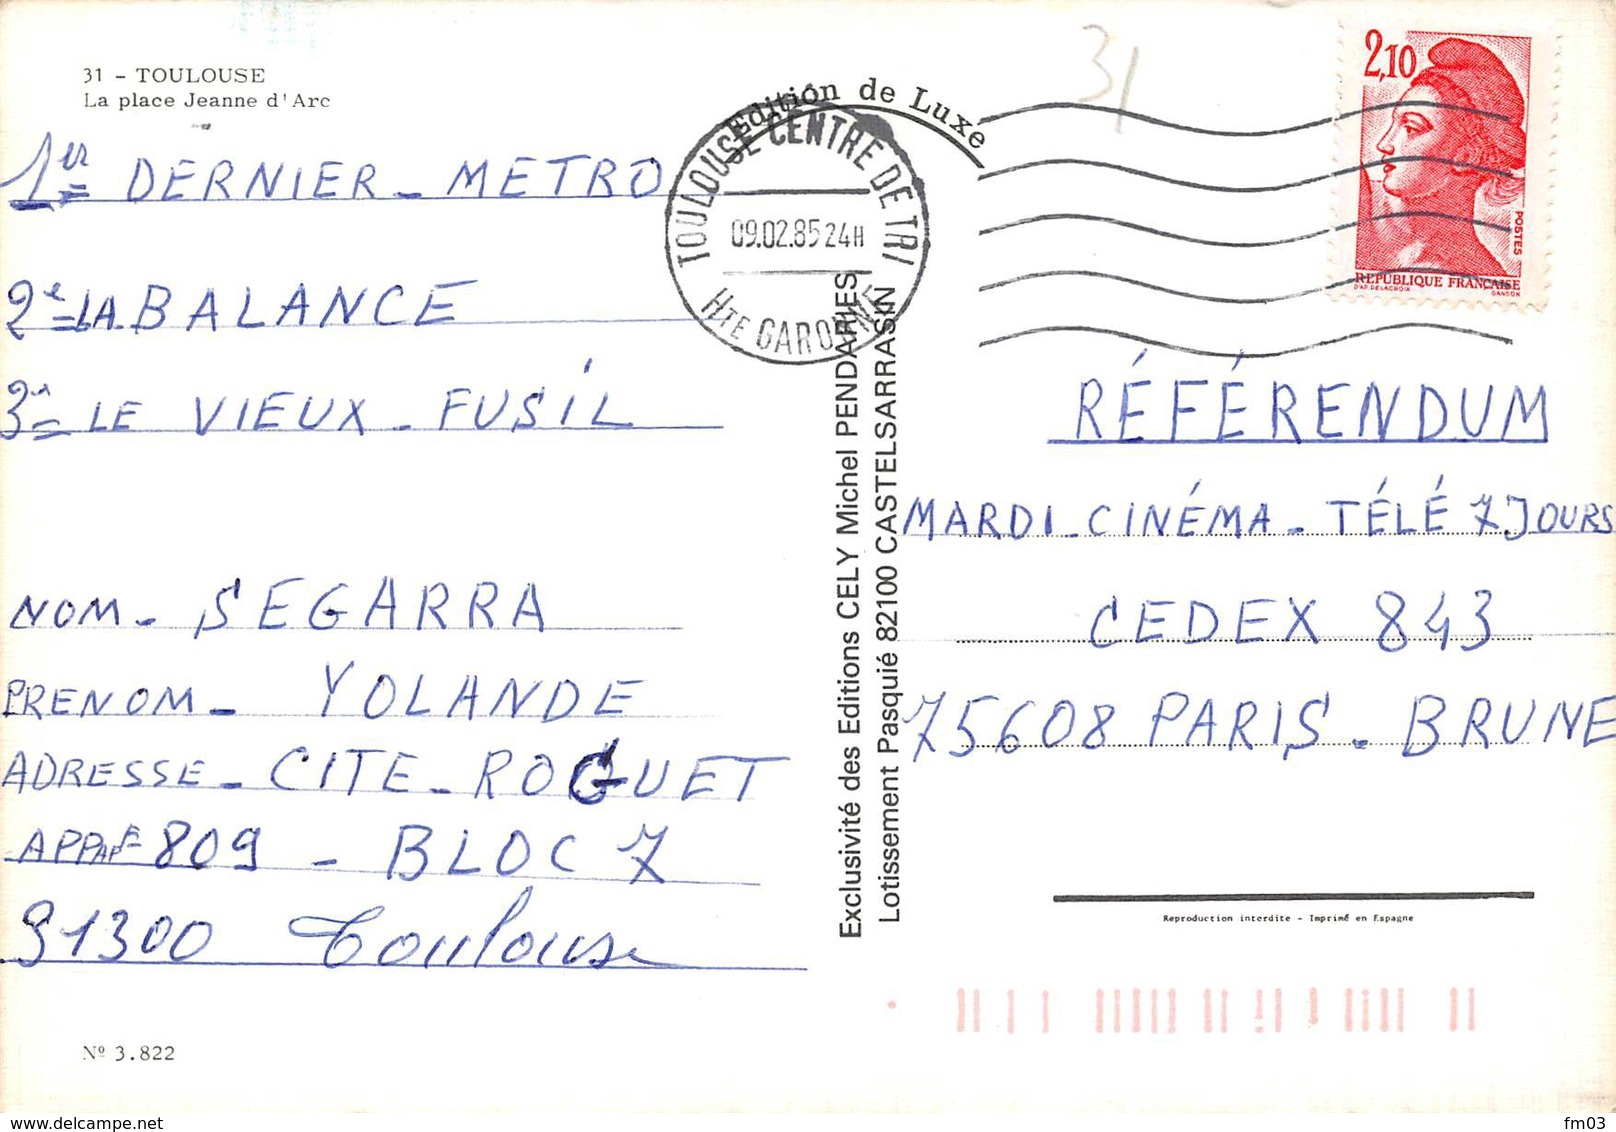 31 - TOULOUSE
La place Jeanne d'Arc
1er DERNIER - METRO
2e LA BALANCE
3e LE VIEUX - FUSIL
NOM - SEGARRA
PRENOM - YOLANDE
ADRESSE - CITE - ROGUET
809 - BLOC 7
31300 Toulouse
Nº 3.822
Edition de Luxe
TOULOUSE CENTRE DE TRI
09.02.85 24H
HTE GARONNE
Exclusivité des Editions CELY Michel PENDARIES
Lotissement Pasquié 82100 CASTELSARRASIN
31
2,10
POSTES
REPUBLIQUE FRANÇAISE
D'AP. DELACROIX GANDON
RÉFÉRENDUM
MARDI - CINÉMA - TÉLÉ 7 JOURS
CEDEX 843
75608 PARIS - BRUNE
Reproduction interdite - Imprimé en Espagne
delcampe.net
fm03